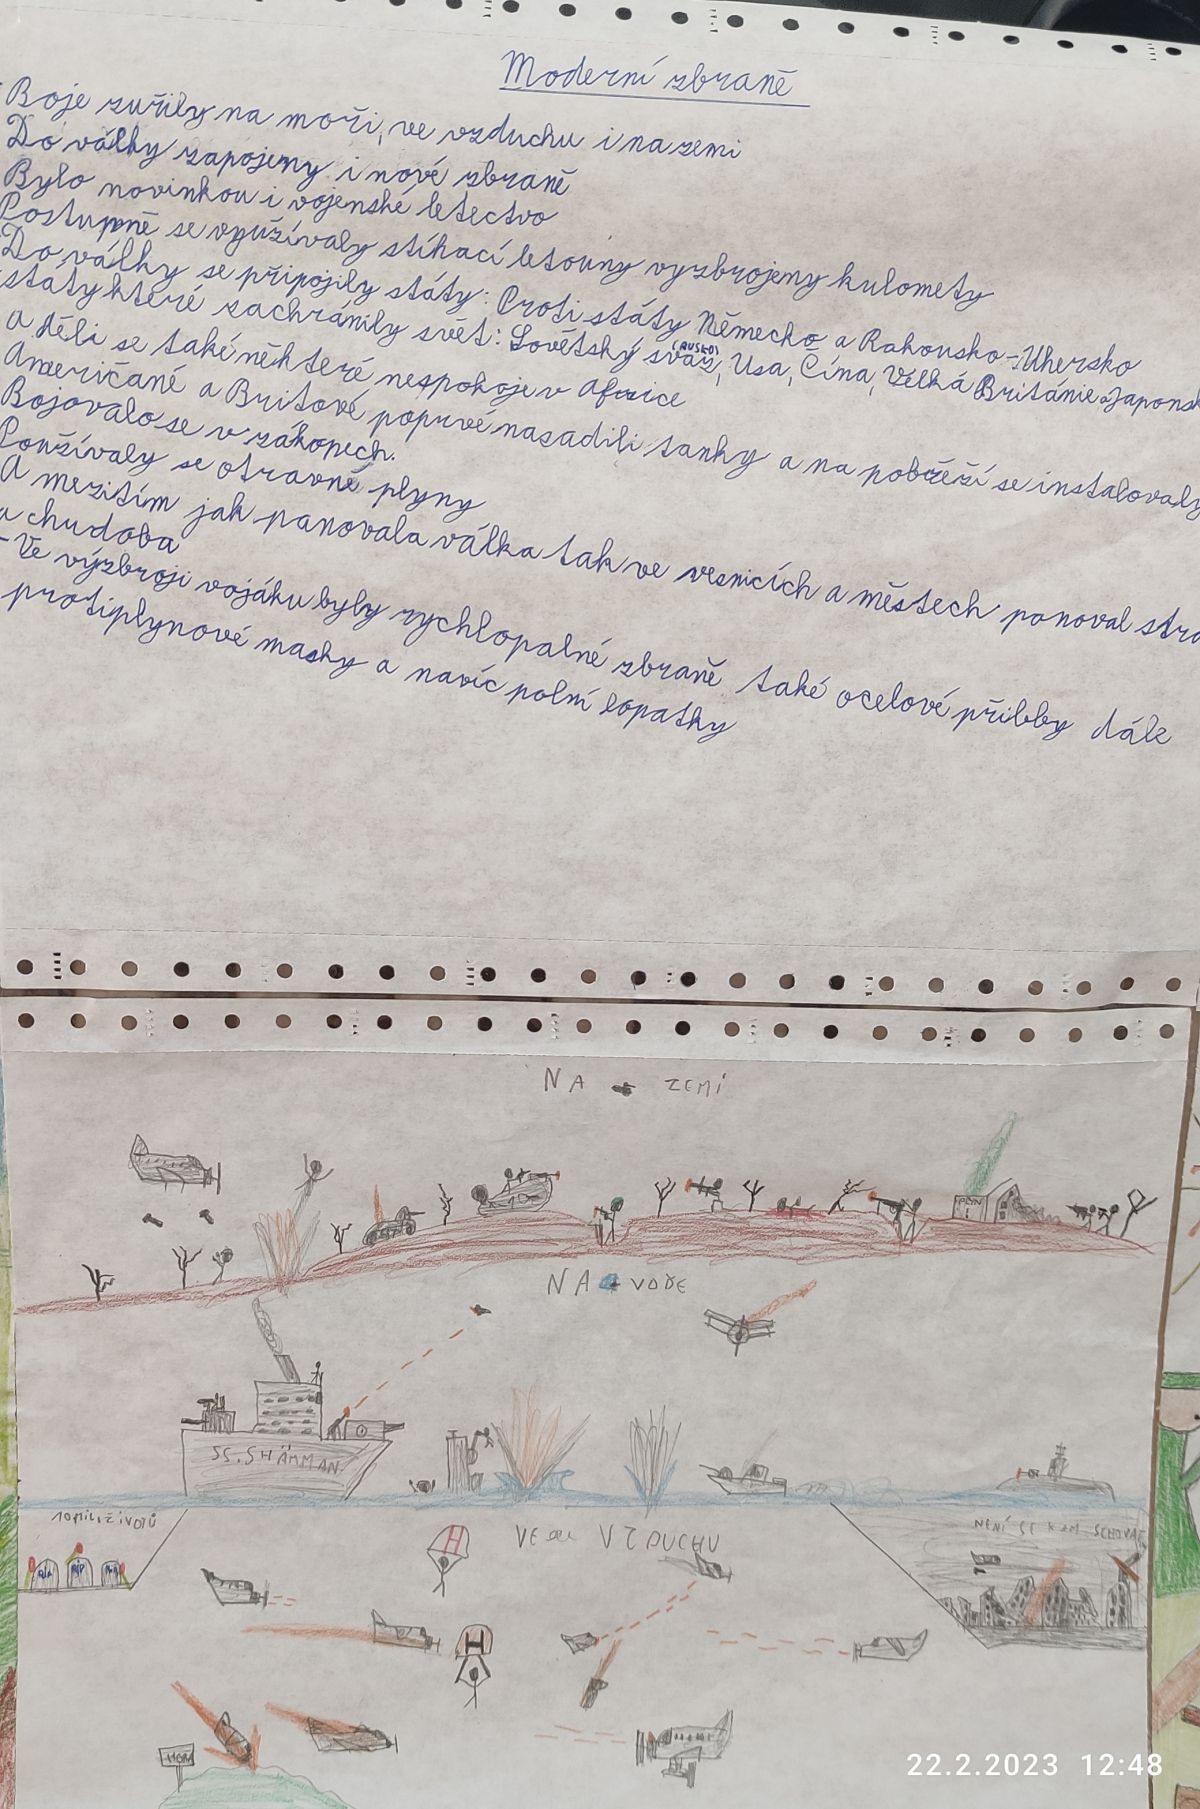 Moderní zbraně
Boje zuřily na moři, ve vzduchu i na zemi
Do války zapojeny i nové zbraně
Bylo novinkou i vojenské letectvo
Postupně se využívaly stíhací letouny vyzbrojeny kulomety
Do války se připojily státy: Proti státy Německo a Rakousko-Uhersko
státy které zachránily svět: Sovětský svaz, (RUSKO) Usa, Čína, Velká Británie a Japonsk
a děli se také některé nespokoje v Africe
Američané a Britové poprvé nasadili tanky a na pobřeží se instalovaly
Bojovalo se v zákopech.
Používaly se otravné plyny
A mezitím jak panovala válka tak ve vesnicích a městech panoval stra
a chudoba
- Ve výzbroji vojáku byly rychlopalné zbraně také ocelové přilby dále
protiplynové masky a navíc polní lopatky
NA ZEMÍ
PLYN
NA VODĚ
SS. SHÄRMAN
10 MILI. ŽIVOTŮ
VE VZDUCHU
NENÍ SE KAM SCHOVAT
H
H
22.2.2023 12:48